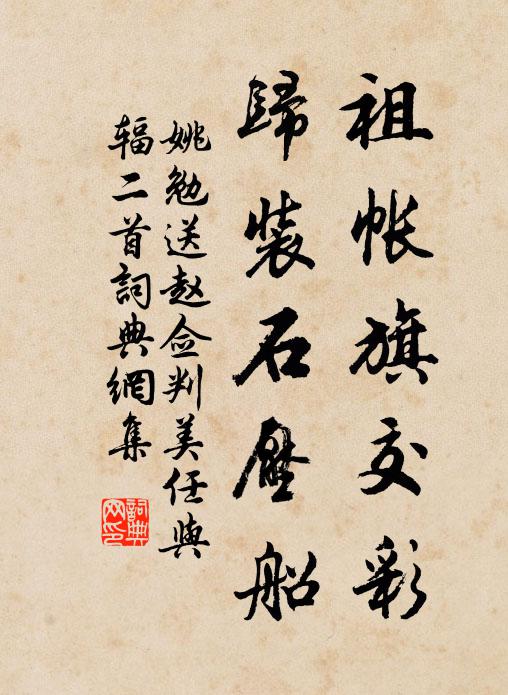 祖帐旗交彩
歸装石壓船
姚勉送赵佥判美任與
辐二首詞典網集
詞典
网印